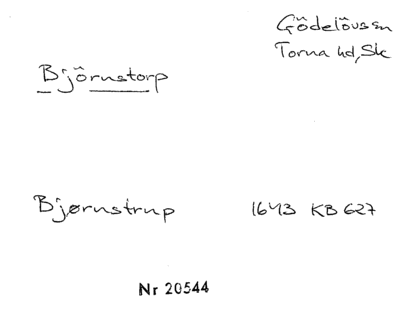 Gödelövs sn
Torna hd, Sk
Björnstorp
Bjørnstrup 1643 KB 627
Nr 20544